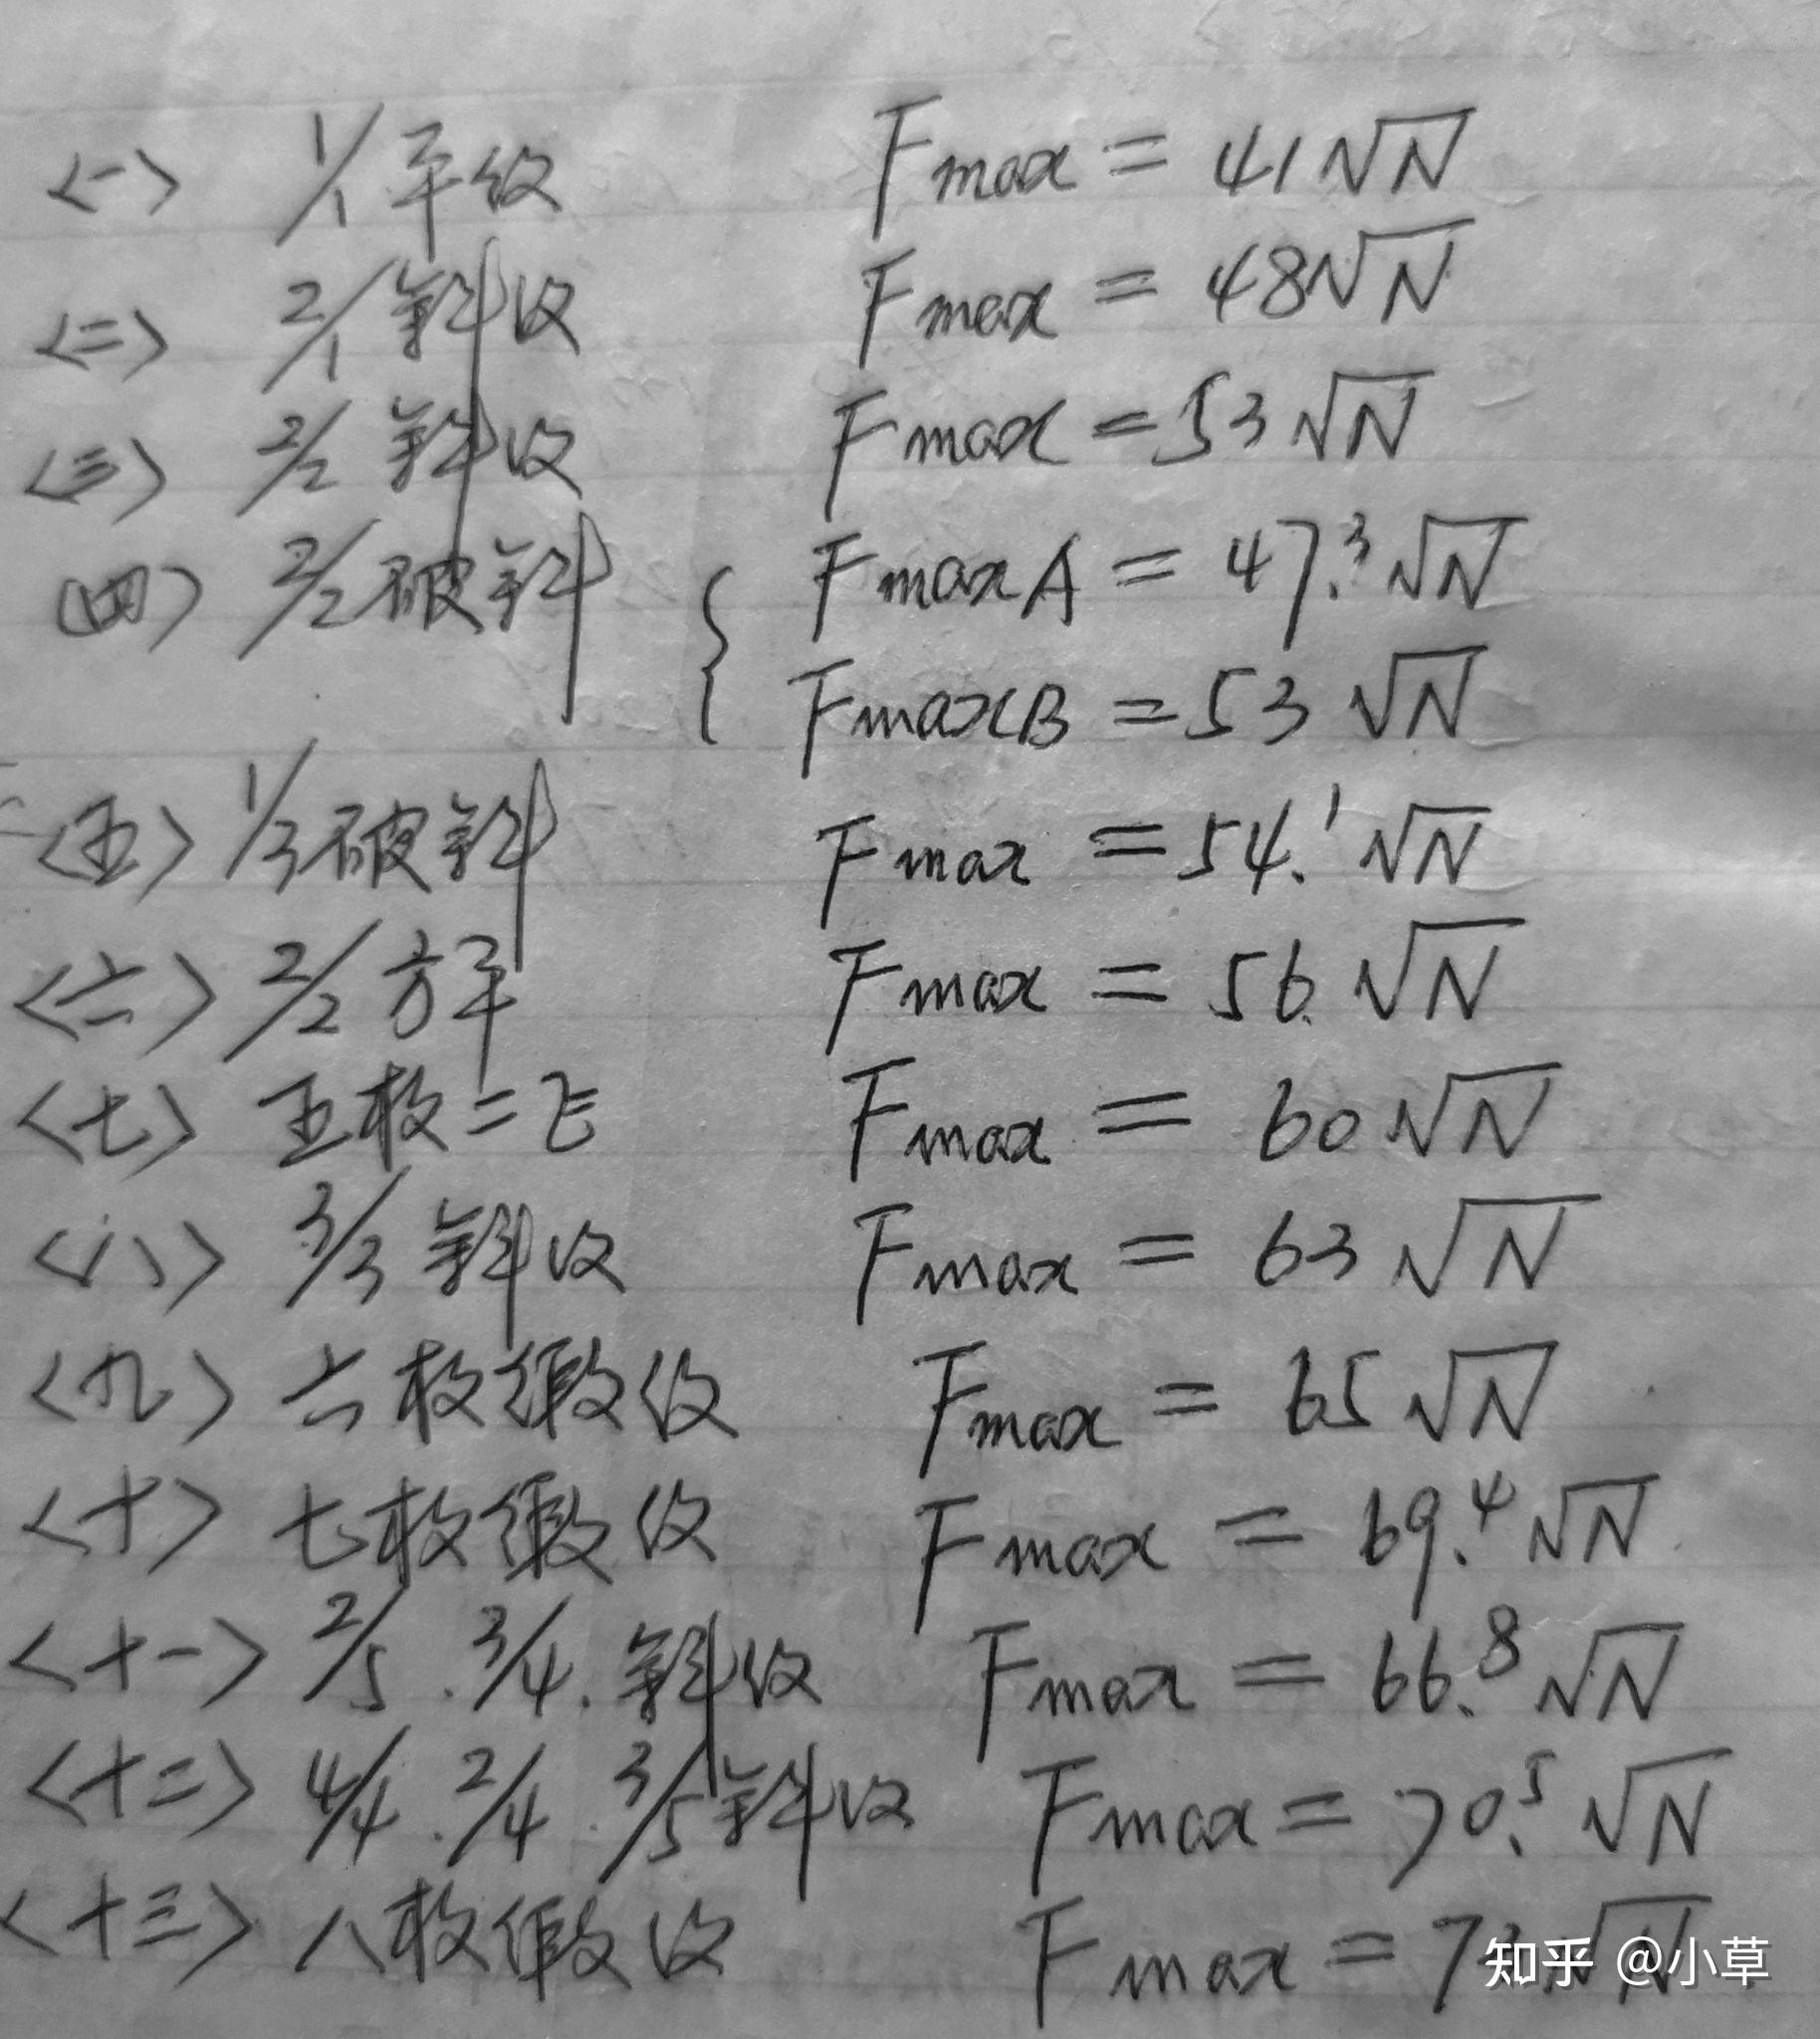 <一> 1/1 平纹 Fmax = 41√N
<二> 2/1 斜纹 Fmax = 48√N
<三> 2/2 斜纹 Fmax = 53√N
(四) 2/2 破斜 { FmaxA = 47.3√N
FmaxB = 53√N
<五> 1/3 破斜 Fmax = 54.1√N
<六> 2/2 方平 Fmax = 56√N
<七> 五枚二飞 Fmax = 60√N
<八> 3/3 斜纹 Fmax = 63√N
<九> 六枚缎纹 Fmax = 65√N
<十> 七枚缎纹 Fmax = 69.4√N
<十一> 2/5 . 3/4 . 斜纹 Fmax = 66.8√N
<十二> 4/4 . 2/4 . 3/5 斜纹 Fmax = 70.5√N
<十三> 八枚缎纹 Fmax = 7 √N
知乎 @小草